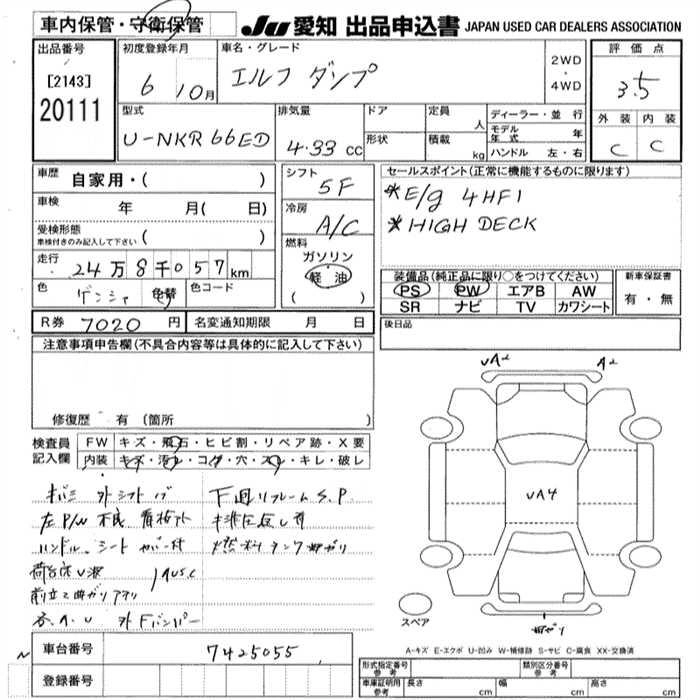 車内保管・守衛保管
JU 愛知 出品申込書 JAPAN USED CAR DEALERS ASSOCIATION
出品番号
[2143]
20111
初度登録年月
6 10月
車名・グレード
エルフ ダンプ
2WD
・
4WD
評価点
3.5
外装 内装
C C
型式
U-NKR66ED
排気量
4.33 CC
ドア
形状
定員
人
積載
kg
ディーラー・並行
モデル年式 年
ハンドル 左・右
車歴 自家用・( )
車検 年 月( 日)
受検形態
車検付きのみ記入して下さい ( )
走行 24万8千057km
色 ゲンシャ 色替 色コード
シフト
5F
冷房
A/C
燃料
ガソリン
軽油
( )
セールスポイント(正常に機能するものに限ります)
*E/g 4HF1
*HIGH DECK
装備品(純正品に限り○をつけてください)
PS PW エアB AW
SR ナビ TV カワシート
新車保証書
有・無
R券 7020円 名変通知期限 月 日
後日品
注意事項申告欄(不具合内容等は具体的に記入して下さい)
修復歴 有 (箇所 )
検査員
記入欄
FW キズ・飛石・ヒビ割・リペア跡・X要
内装 キズ・汚レ・コゲ・穴・スレ・キレ・破レ
下回リフレーム S.P
左P/W不良
ハンドル、シート
燃料タンク
UA2 A2
UA4
スペア
A-キズ E-エクボ U-凹み W-補修跡 S-サビ C-腐食 XX-交換済
車台番号 7425055
登録番号
形式指定番号
参考
類別区分番号
参考
車庫証明用
参考
長さ cm 幅 cm 高さ cm